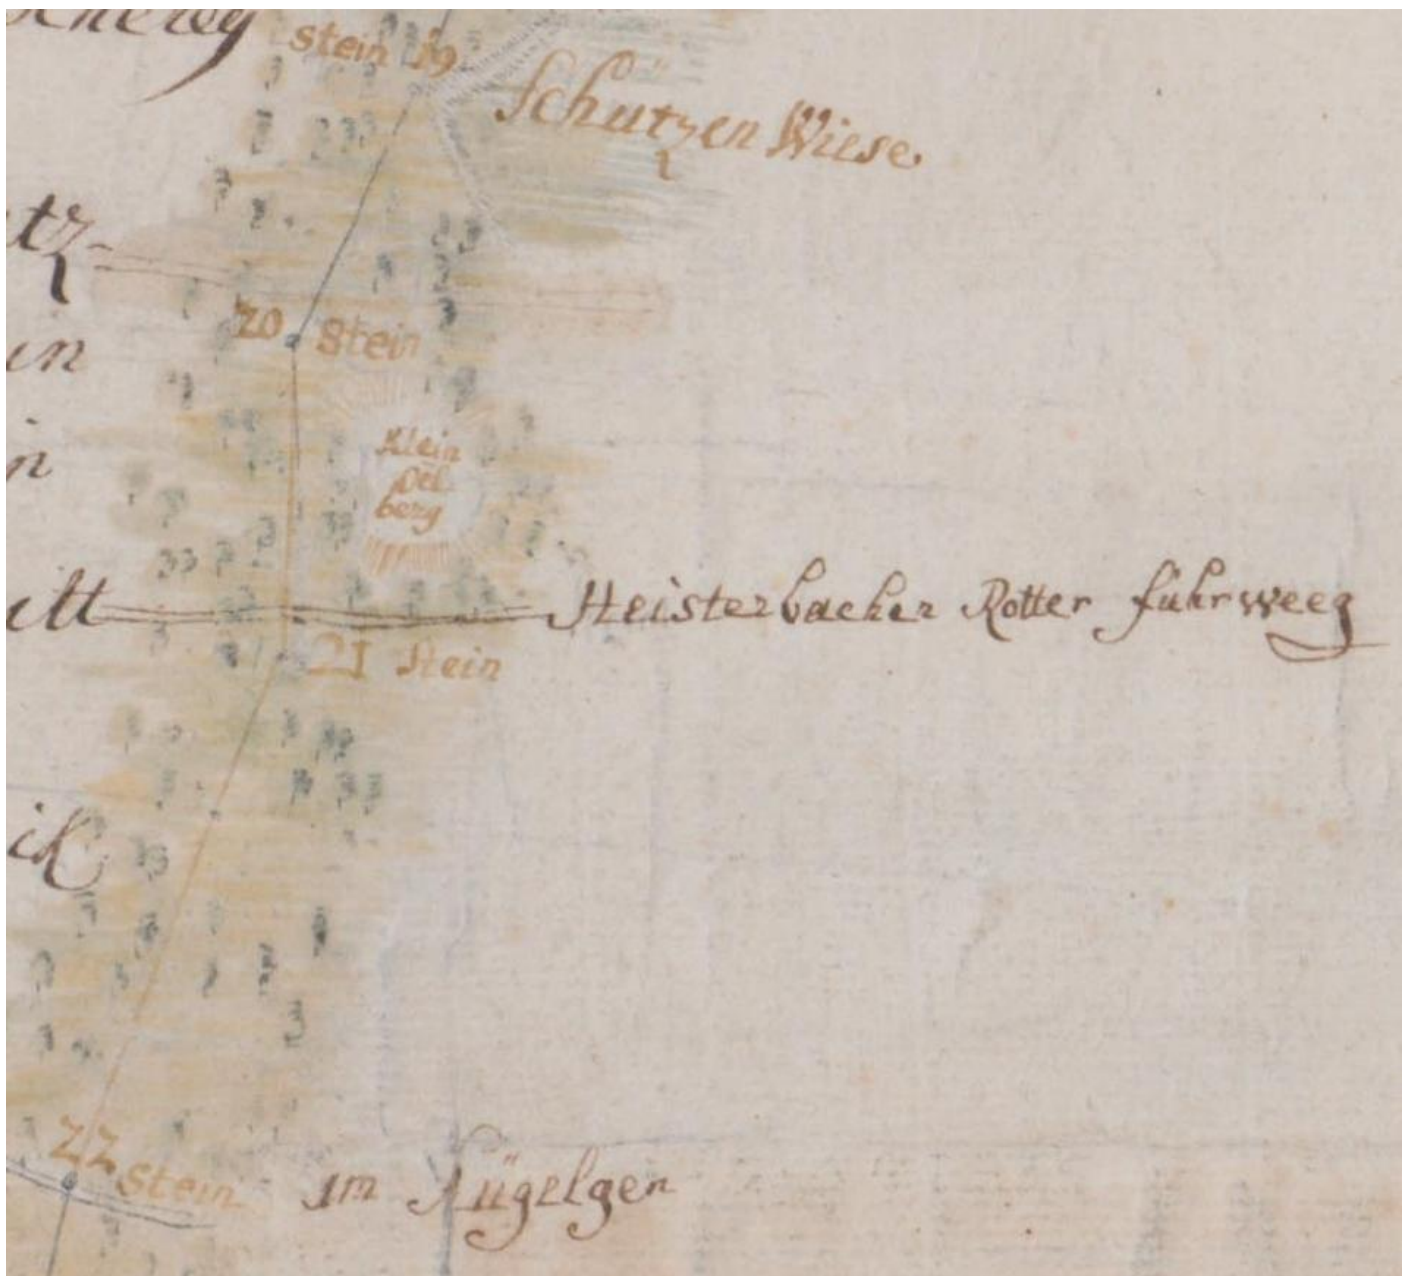 stein 19
Schützen Wiese.
tz
20. Stein
in
Klein
Oel
berg
Heisterbacher Rotter fuhrweeg
21 Stein
22 stein
im Hügelgen